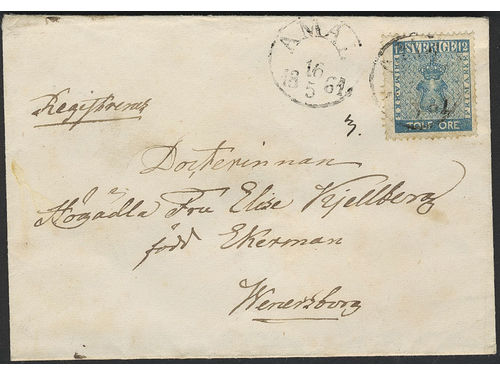 ÅMÅL
16
18 5 61
12 SVERIGE 12
TOLF ÖRE
3.
Docterinnan
Högädla Fru Elise Kjellberg
född Ekerman
Wenersborg